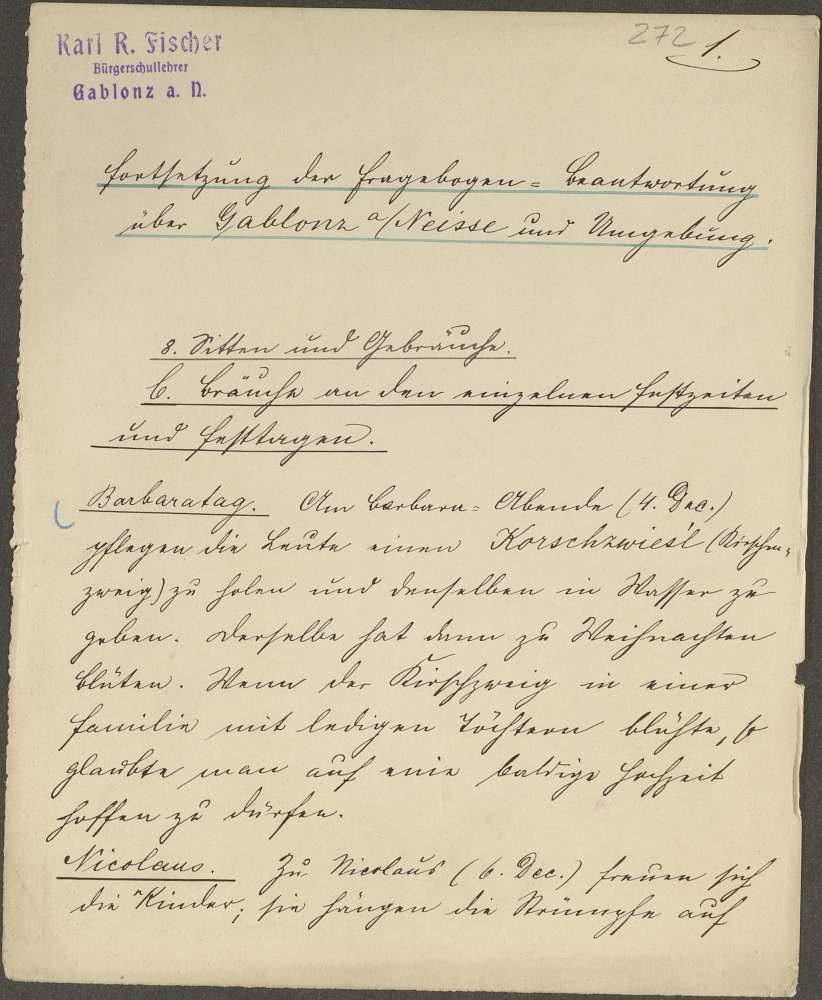 Karl R. Fischer
Bürgerschullehrer
Gablonz a. N.
272 1.
Fortsetzung der Fragebogen-Beantwortung
über Gablonz a/Neisse und Umgebung.
8. Sitten und Gebräuche.
b. Bräuche an den einzelnen Festzeiten
und Festtagen.
Barbaratag. Am Barbara-Abende (4. Dec.)
pflegen die Leute einen Korschzwies'l (Kirschen-
zweig) zu holen und denselben in Wasser zu
geben. Derselbe hat dann zu Weihnachten
Blüten. Wenn der Kirschzweig in einer
Familie mit ledigen Töchtern blühte, so
glaubte man auf eine baldige Hochzeit
hoffen zu dürfen.
Nicolaus. Zu Nicolaus (6. Dec.) freuen sich
die Kinder; sie hängen die Strümpfe auf